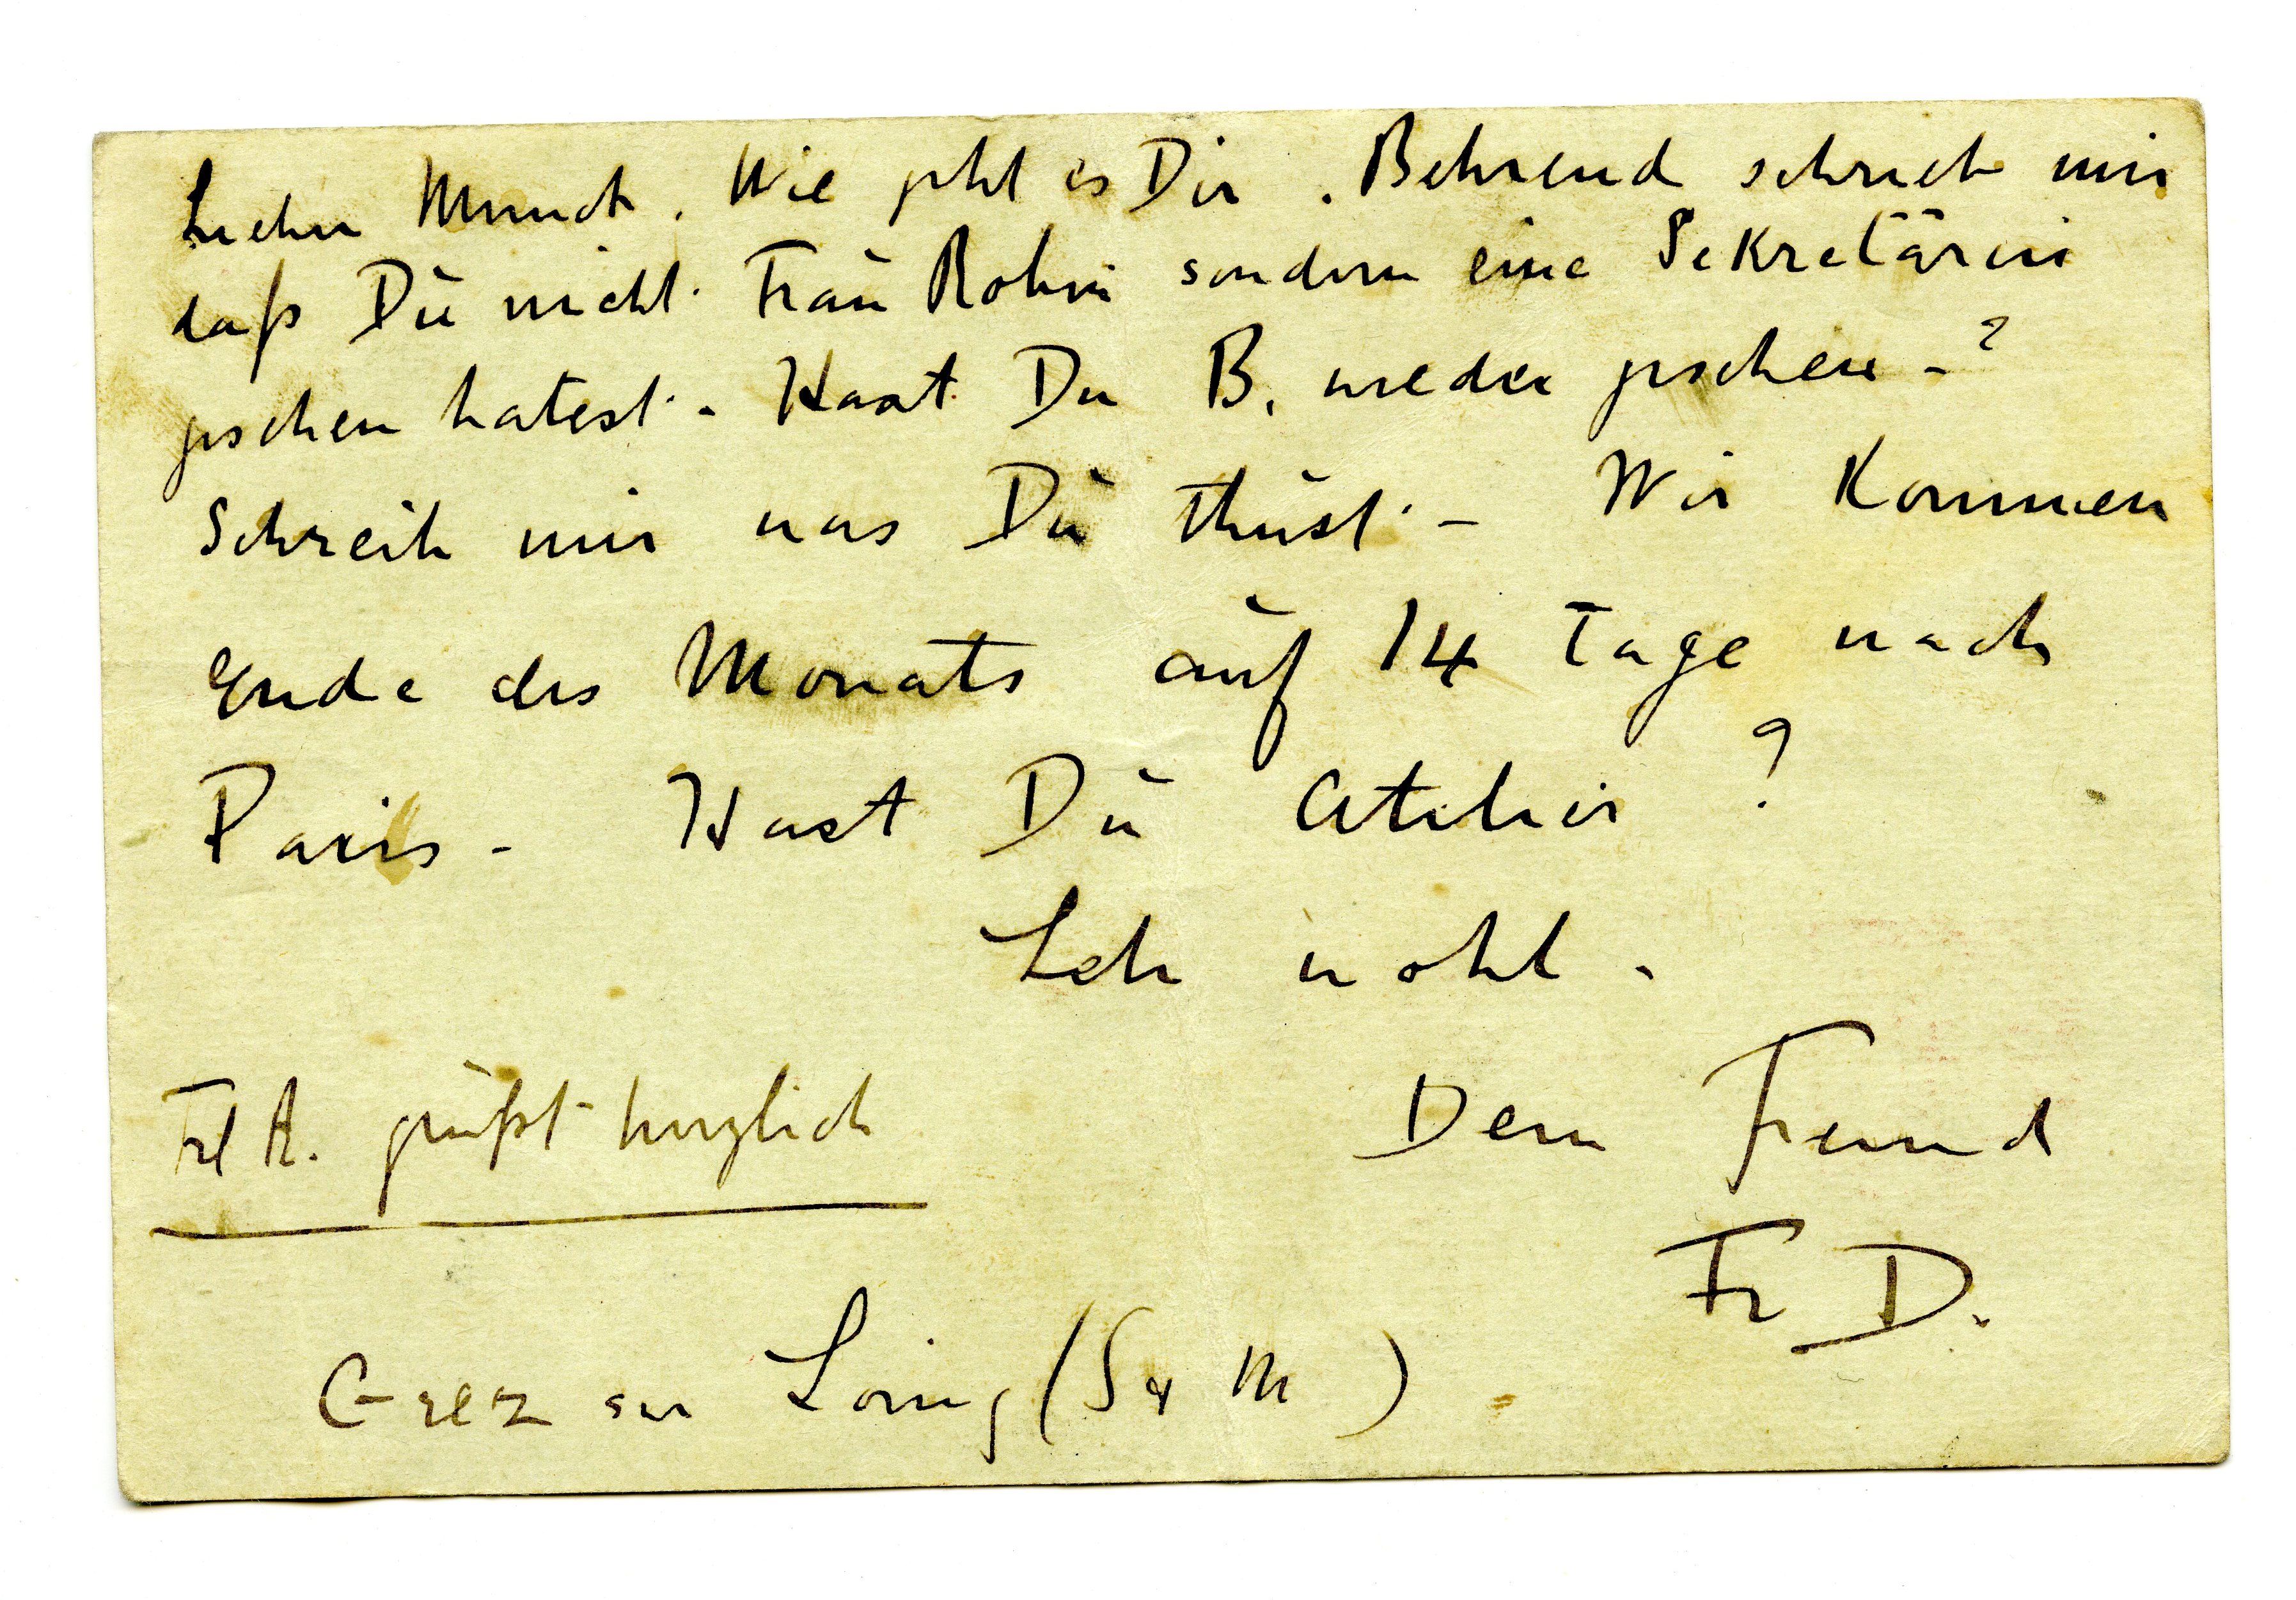 Lieber Munch. Wie geht es Dir. Behrend schrieb mir
daß Du nicht Frau Rohm sondern eine Sekretärin
gesehen hatest. - Hast Du B. wieder gesehen - ?
Schreib mir was Du thust. - Wir kommen
Ende des Monats auf 14 Tage nach
Paris - Hast Du Atelier ?
Leb wohl.
Dein Freund
Fr D.
Frl R. grüßt herzlich
Grez sur Loing (S et M)